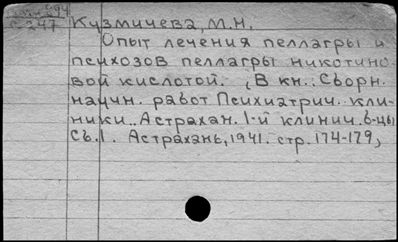 Кузмичева, М.Н.
Опыт лечения пеллагры и
психозов пеллагры никотино
вой кислотой. (В кн.: Сборн.
научн. работ Психиатрич. кли-
ники.. Астрахан. 1-й клинич. б-цы
Сб.1. Астрахань, 1941. стр. 174-179)